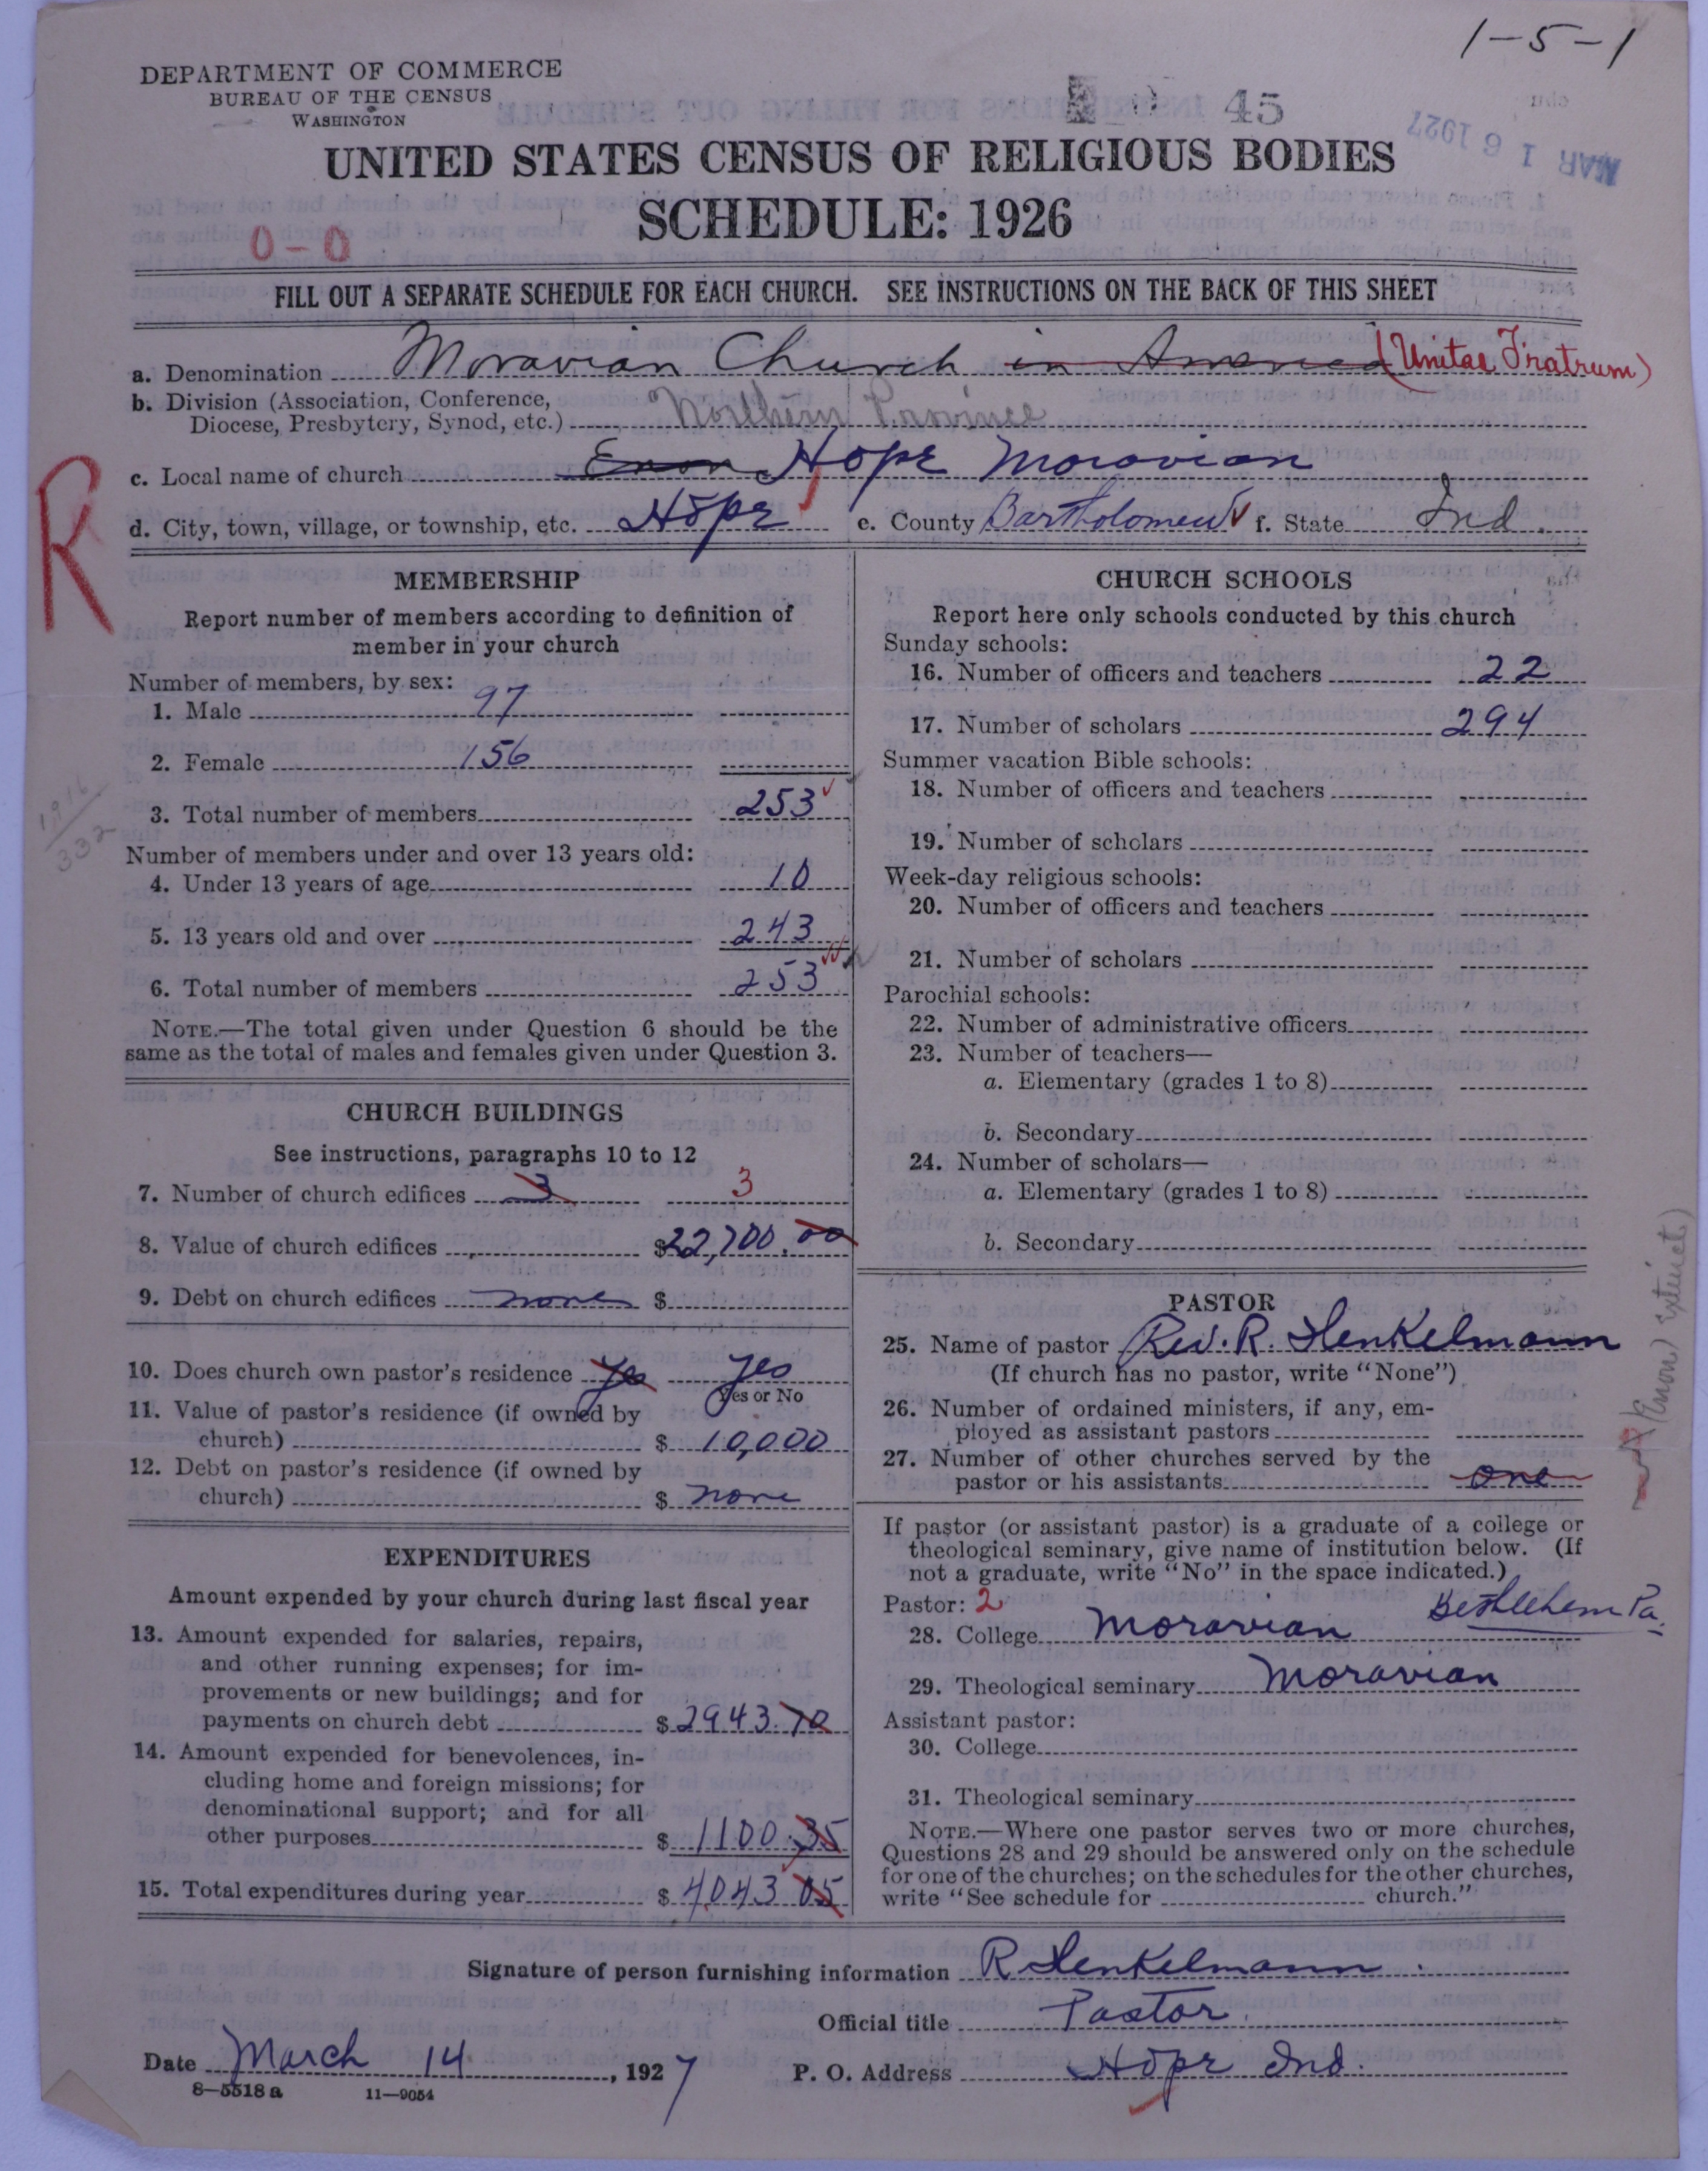 1-5-1
DEPARTMENT OF COMMERCE
BUREAU OF THE CENSUS
WASHINGTON
45
MAR 16 1927
UNITED STATES CENSUS OF RELIGIOUS BODIES
SCHEDULE: 1926
0-0
FILL OUT A SEPARATE SCHEDULE FOR EACH CHURCH. SEE INSTRUCTIONS ON THE BACK OF THIS SHEET
a. Denomination Moravian Church in America (Unitas Fratrum)
b. Division (Association, Conference,
Diocese, Presbytery, Synod, etc.) Northern Province
R
c. Local name of church Enon Hope Moravian
d. City, town, village, or township, etc. Hope e. County Bartholomew f. State Ind.
MEMBERSHIP
Report number of members according to definition of
member in your church
Number of members, by sex:
1. Male 97
2. Female 156
1916
332
3. Total number of members 253
Number of members under and over 13 years old:
4. Under 13 years of age 10
5. 13 years old and over 243
6. Total number of members 253
NOTE.—The total given under Question 6 should be the
same as the total of males and females given under Question 3.
CHURCH BUILDINGS
See instructions, paragraphs 10 to 12
7. Number of church edifices 3 3
8. Value of church edifices $22,700.00
9. Debt on church edifices none $
10. Does church own pastor's residence yes yes
Yes or No
11. Value of pastor's residence (if owned by
church) $ 10,000
12. Debt on pastor's residence (if owned by
church) $ none
EXPENDITURES
Amount expended by your church during last fiscal year
13. Amount expended for salaries, repairs,
and other running expenses; for im-
provements or new buildings; and for
payments on church debt $ 2943.70
14. Amount expended for benevolences, in-
cluding home and foreign missions; for
denominational support; and for all
other purposes $ 1100.35
15. Total expenditures during year $ 4043 05
CHURCH SCHOOLS
Report here only schools conducted by this church
Sunday schools:
16. Number of officers and teachers 22
17. Number of scholars 294
Summer vacation Bible schools:
18. Number of officers and teachers
19. Number of scholars
Week-day religious schools:
20. Number of officers and teachers
21. Number of scholars
Parochial schools:
22. Number of administrative officers
23. Number of teachers—
a. Elementary (grades 1 to 8)
b. Secondary
24. Number of scholars—
a. Elementary (grades 1 to 8)
b. Secondary
PASTOR
25. Name of pastor Rev. R. Henkelmann
(If church has no pastor, write "None")
26. Number of ordained ministers, if any, em-
ployed as assistant pastors
27. Number of other churches served by the
pastor or his assistants one
(Enon) extinct)
If pastor (or assistant pastor) is a graduate of a college or
theological seminary, give name of institution below. (If
not a graduate, write "No" in the space indicated.)
Pastor: 2
28. College Moravian Bethlehem Pa.
29. Theological seminary Moravian
Assistant pastor:
30. College
31. Theological seminary
NOTE.—Where one pastor serves two or more churches,
Questions 28 and 29 should be answered only on the schedule
for one of the churches; on the schedules for the other churches,
write "See schedule for church."
Signature of person furnishing information R Henkelmann.
Official title Pastor.
Date March 14, 1927 P. O. Address Hope Ind.
8—5518 a 11—9054